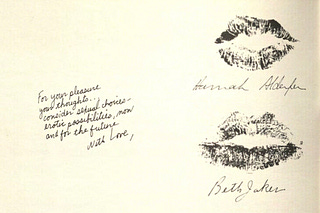 For your pleasure
your thoughts...
consider sexual choices -
erotic possibilities, now
and for the future
With Love,
Hannah Alderfer
Beth Jaker